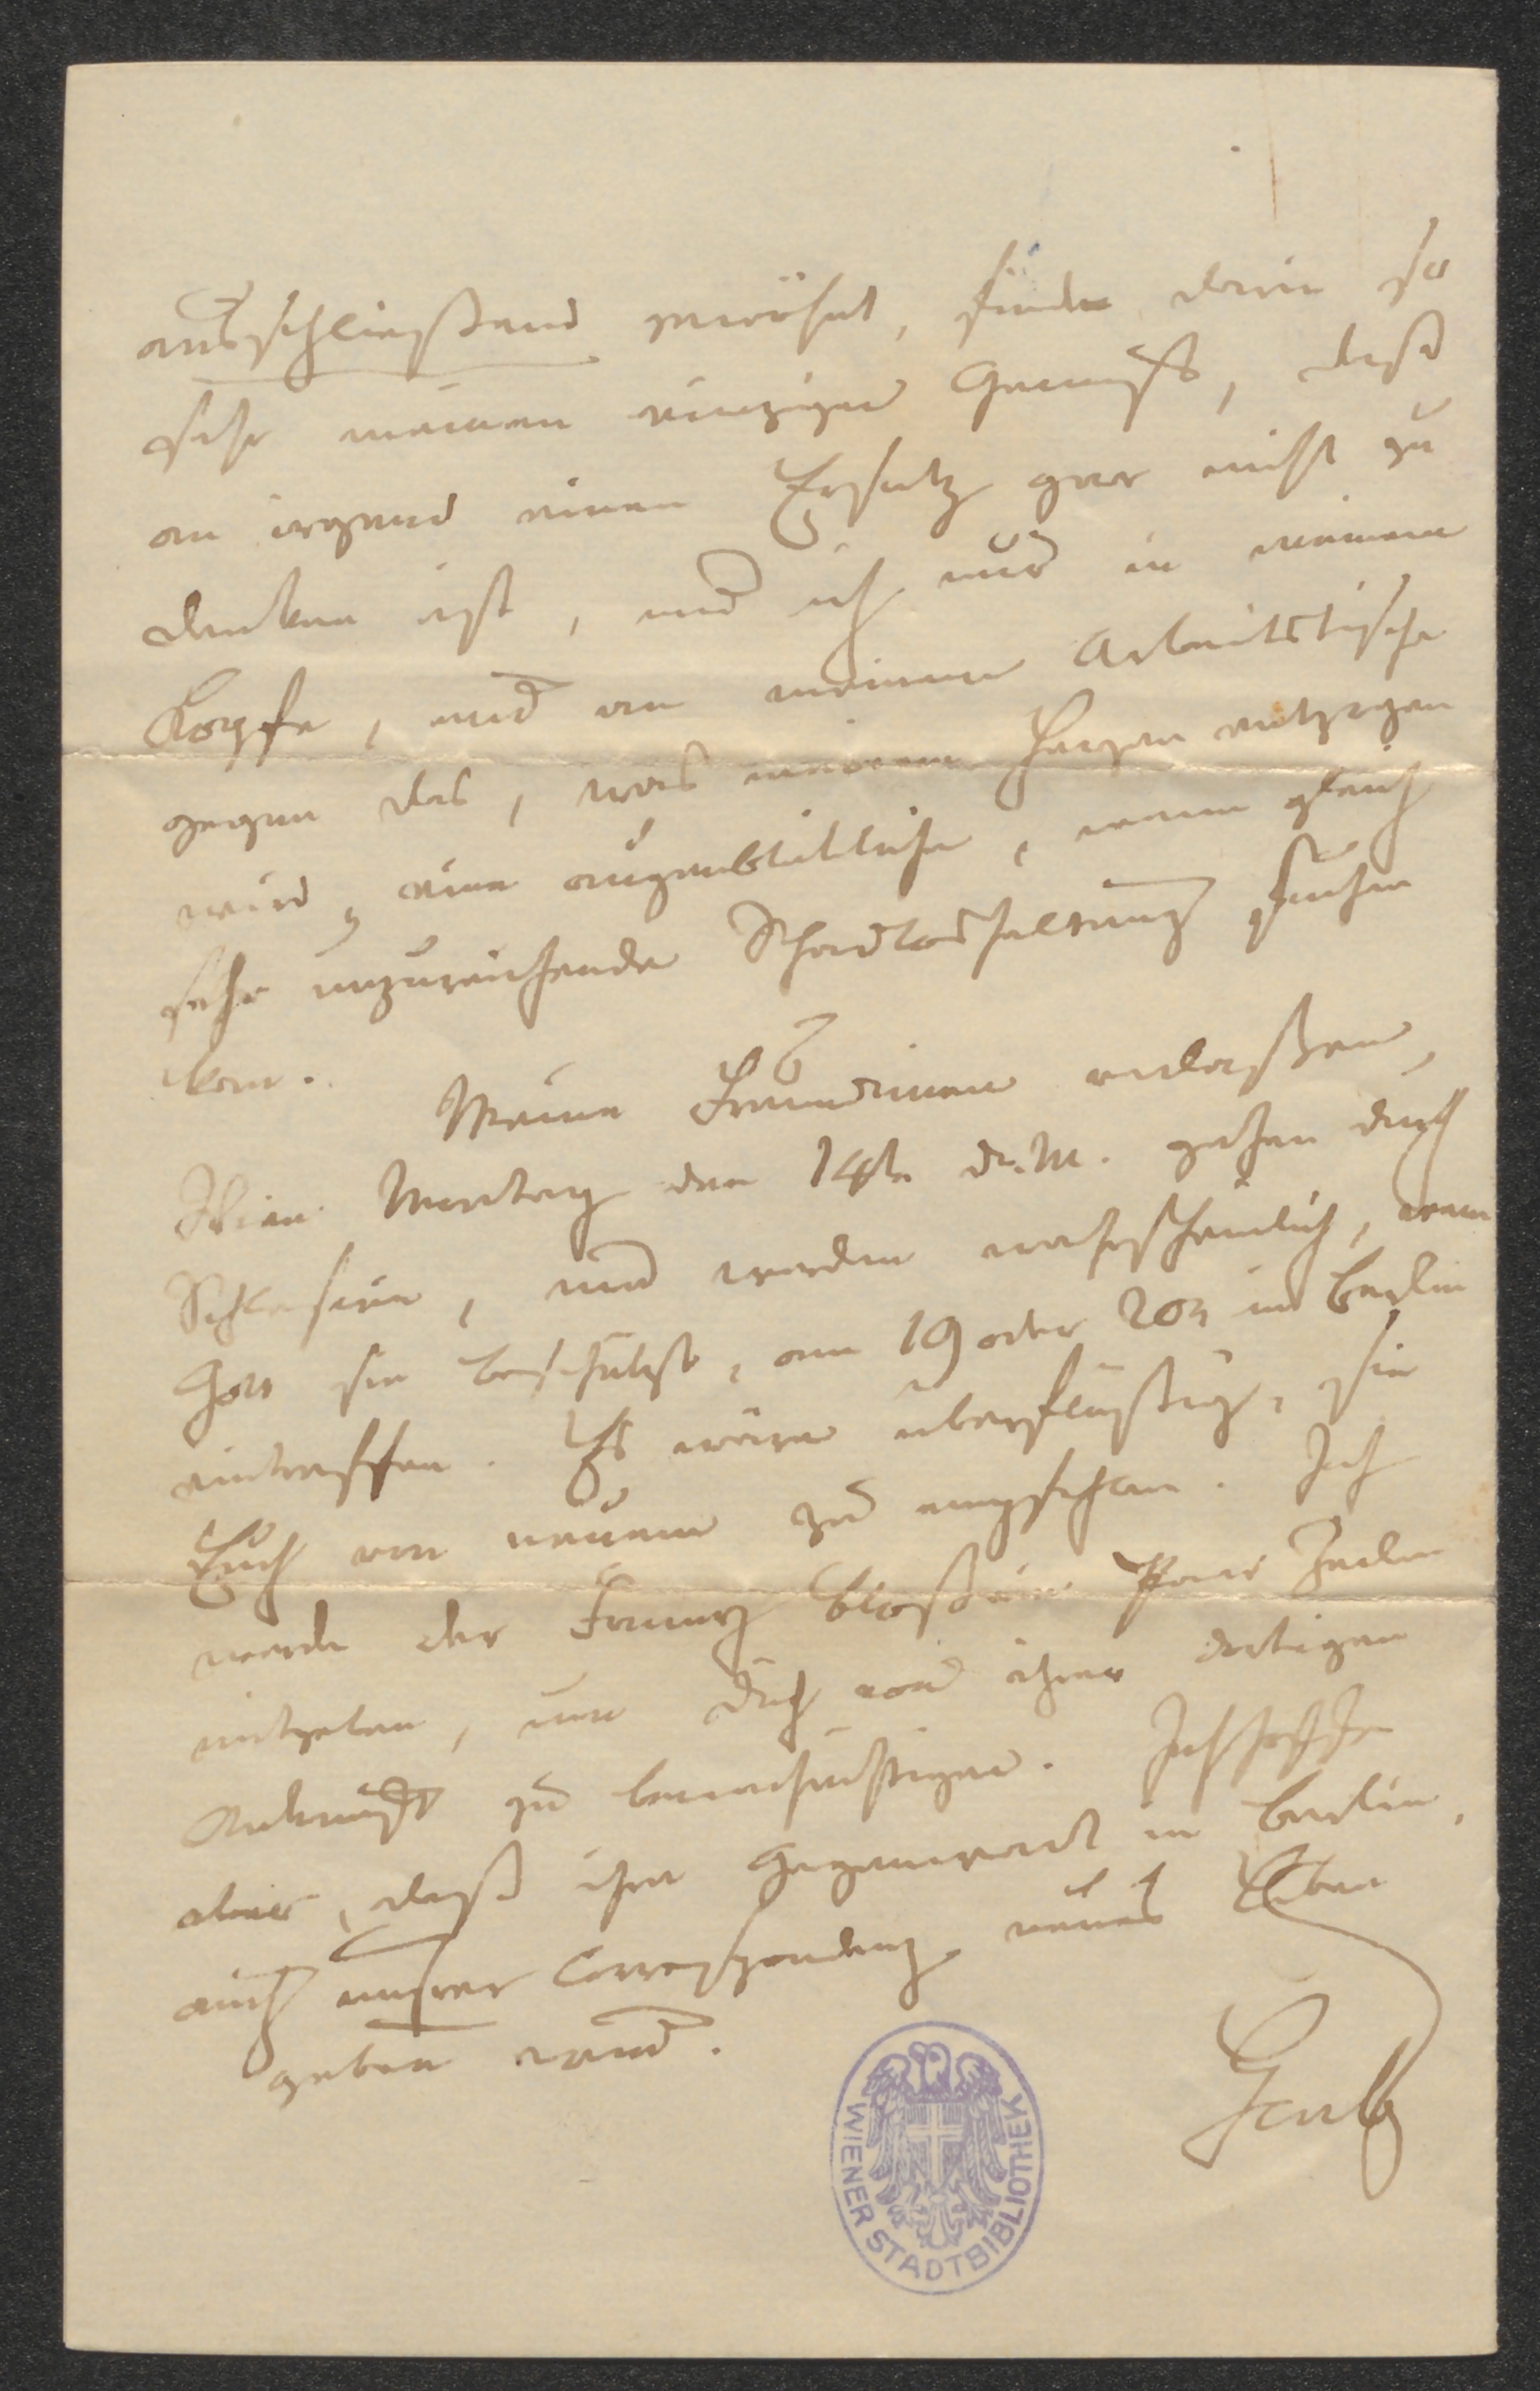 ausschließend gewöhnt, finde darin so
sehr meinen einzigen Genuß, daß
an irgend einen Ersatz gar nicht zu
denken ist, und ich nur in meinem
Kopfe, und an meinem Arbeitstische
gegen das, was meinem Herzen entzogen
wird, eine augenblickliche, wenn gleich
sehr unzureichende Schadloshaltung suchen
kan.
Meine Freundinen verlaßen
Wien Montag den 14t. d. M. gehen durch
Schlesien, und werden wahrscheinlich, wenn
Gott sie beschützt, am 19 oder 20n in Berlin
eintreffen. Es wäre überflüßig, sie
Euch von neuem zu empfehlen. Ich
werde der Fanny bloß ein Paar Zeilen
mitgeben, um Dich von ihrer dortigen
Ankunft zu benachrichtigen. Ich hoffe
aber, daß ihre Gegenwart in Berlin,
auch unsrer Correspondenz neues Leben
geben wird.
Gentz
WIENER STADTBIBLIOTHEK